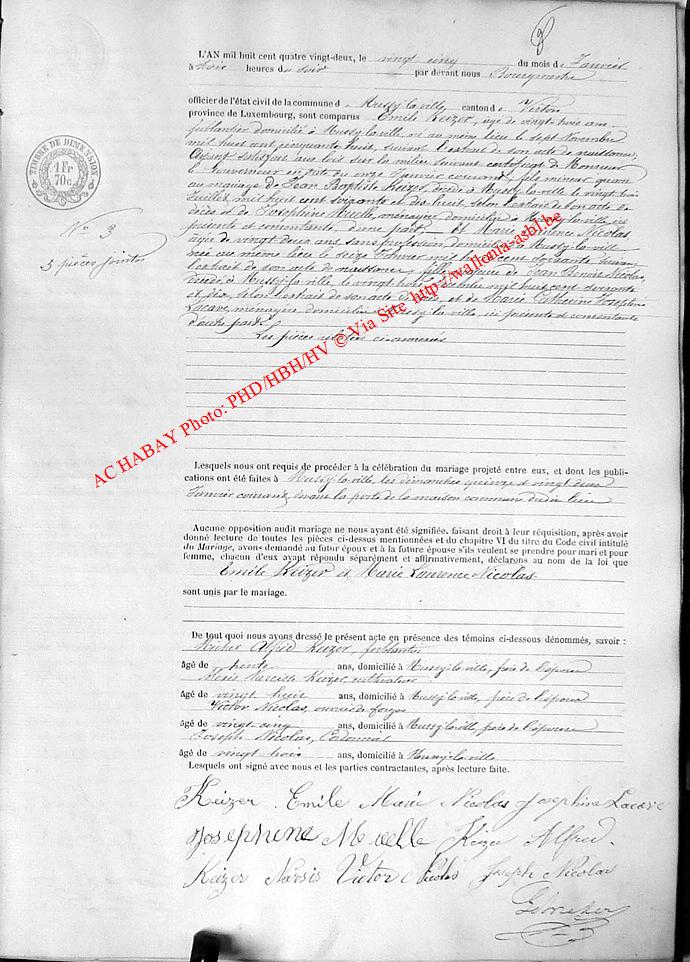 3
L'AN mil huit cent quatre vingt-deux, le vingt cinq du mois de Janvier
à heures du soir par devant nous
officier de l'état civil de la commune de Mussy-la-ville, canton de Virton
province de Luxembourg, sont comparus Emile Keizer, âgé de vingt trois ans
ferblantier domicilié à Mussy-la-ville, né au même lieu le sept Novembre
mil huit cent cinquante huit, suivant l'extrait de son acte de naissance,
Ayant satisfait aux lois sur la milice suivant certificat de Monsieur
le Gouverneur en date du onze Janvier courant, fils mineur quant
au mariage de Jean Baptiste Keizer, décédé à Mussy-la-ville le vingt trois
Juillet mil huit cent soixante et dix huit, selon l'extrait de son acte de
décès et de Josephine Muelle, ménagère domiciliée à Mussy-la-ville, ici
présente et consentante, d'une part. Et Marie Laurence Nicolas
âgée de vingt deux ans, sans profession domiciliée à Mussy-la-ville
née au même lieu le seize mil huit cent suivant
l'extrait de son acte de naissance, fille de Jean Benoit Nicolas
décédé à Mussy-la-ville, le vingt mil huit cent soixante
et dix, selon l'extrait de son acte de décès, et de Marie Catherine Josephine
Lacave, ménagère, domiciliée à Mussy-la-ville, ici présente et consentante
d'autre part.
Les pièces relatées ci-annexées
TIMBRE DE DIMENSION
1 Fr
70 c.
N° 3
5 pièces jointes
AC HABAY Photo: PHD/HBH/HV © Via Site http://wallonia-asbl.be
Lesquels nous ont requis de procéder à la célébration du mariage projeté entre eux, et dont les publi-
cations ont été faites à Mussy-la-ville, les dimanches quinze et vingt deux
Janvier courant, devant la porte de la maison commune dudit lieu
Aucune opposition audit mariage ne nous ayant été signifiée, faisant droit à leur réquisition, après avoir
donné lecture de toutes les pièces ci-dessus mentionnées et du chapitre VI du titre du Code civil intitulé
du Mariage, avons demandé au futur époux et à la future épouse s'ils veulent se prendre pour mari et pour
femme, chacun d'eux ayant répondu séparément et affirmativement, déclarons au nom de la loi que
Emile Keizer et Marie Laurence Nicolas
sont unis par le mariage.
De tout quoi nous avons dressé le présent acte en présence des témoins ci-dessous dénommés, savoir :
Alfred Keizer, ferblantier
âgé de trente ans, domicilié à Mussy-la-ville, frère de l'époux
Narcisse Keizer, cultivateur
âgé de vingt huit ans, domicilié à Mussy-la-ville, frère de l'époux
Victor Nicolas, ouvrier de forges
âgé de vingt cinq ans, domicilié à Mussy-la-ville, frère de l'épouse
Joseph Nicolas, Cordonnier
âgé de vingt trois ans, domicilié à Mussy-la-ville
Lesquels ont signé avec nous et les parties contractantes, après lecture faite.
Keizer Emile Marie Nicolas Josephine Lacave
Josephine Muelle Keizer Alfred
Keizer Narsis Victor Nicolas Joseph Nicolas